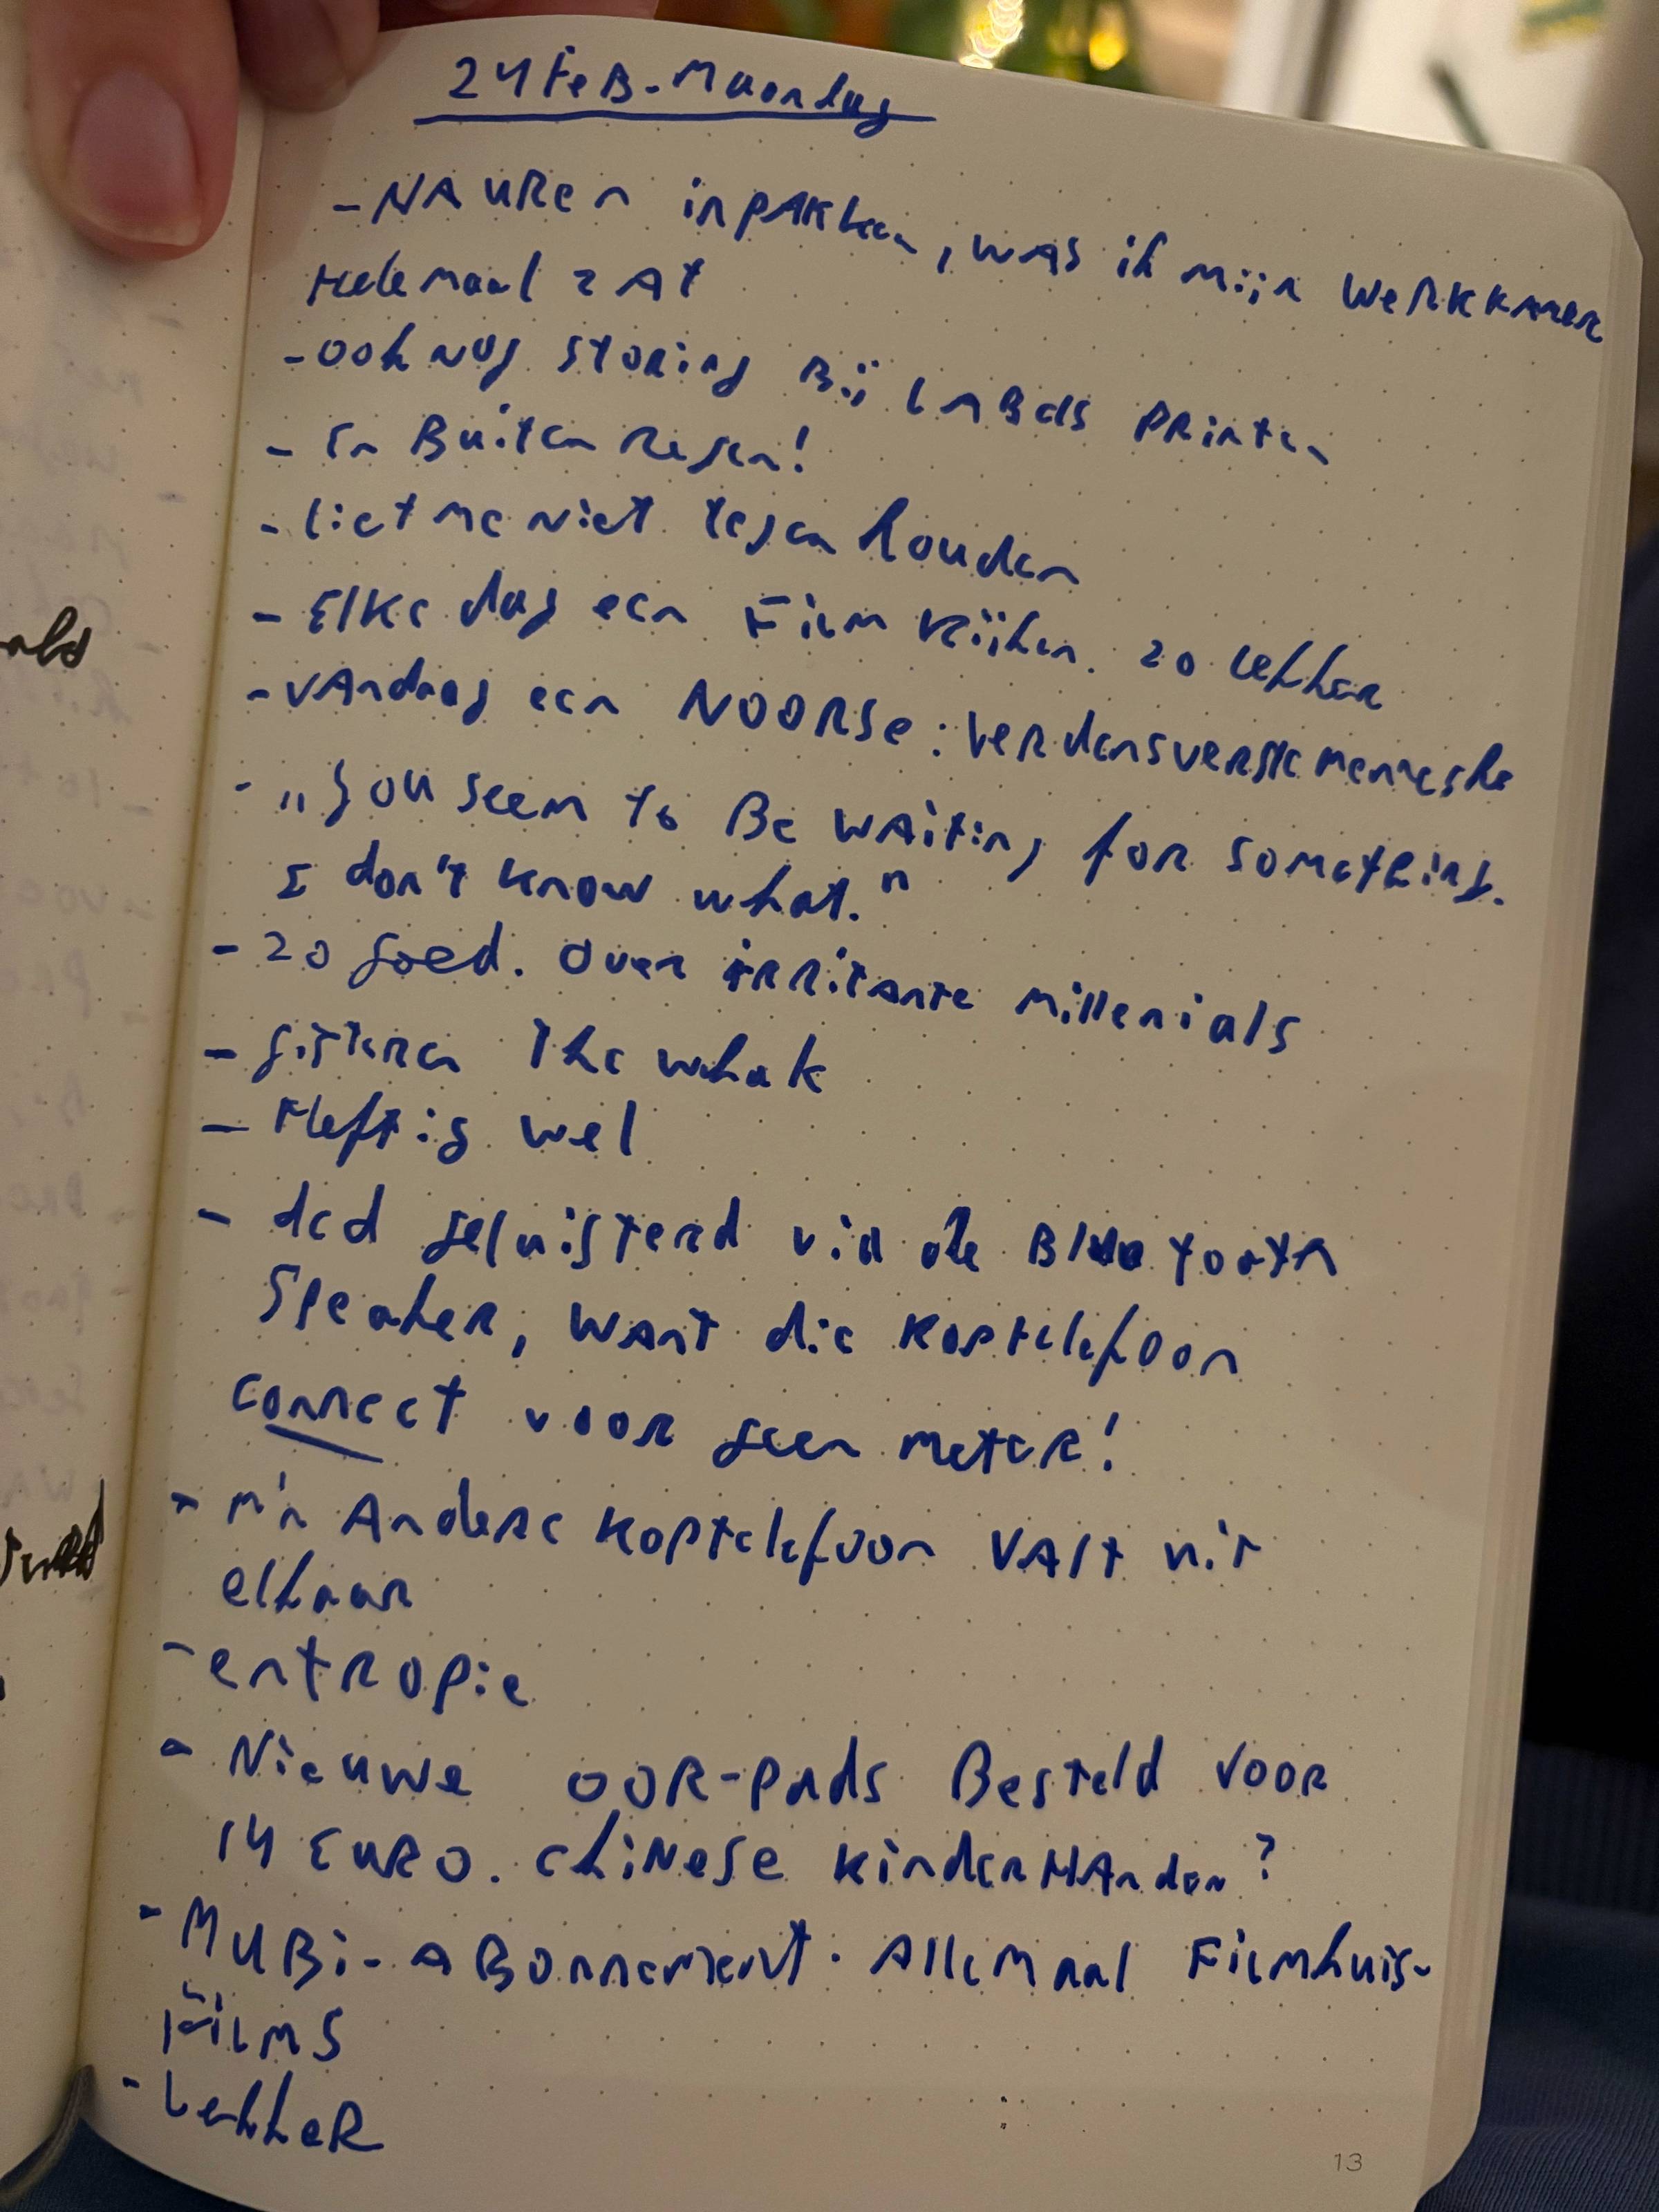 24 FEB. Maandag
- NA UREN inpAKken, WAS ik mijn WERKKAMER
Helemaal ZAT
- ook nog STORING Bij LABels PRinten
- En Buiten Regen!
- liet me niet tegen houden
- Elke dag een Film kijken. Zo lekker
- VAndaag een NOORSe: Verdensverste menneske
- „You seem to Be WAiting for something.
I don't know what."
- Zo goed. Over iRRitante millenials
- gisteren The whale
- Heftig wel
- dcd geluisterd via de Bluetooth
Speaker, WAnt die Koptelefoon
connect voor geen meter!
- M'n Andere Koptelefoon VAlt uit
elkaar
- entROPie
- Nieuwe OOR-pads Besteld VOOR
14 EURO. Chinese KinderHAnden?
- MUBi-ABonnement. Allemaal Filmhuis-
Films
- LekkeR
ald
13